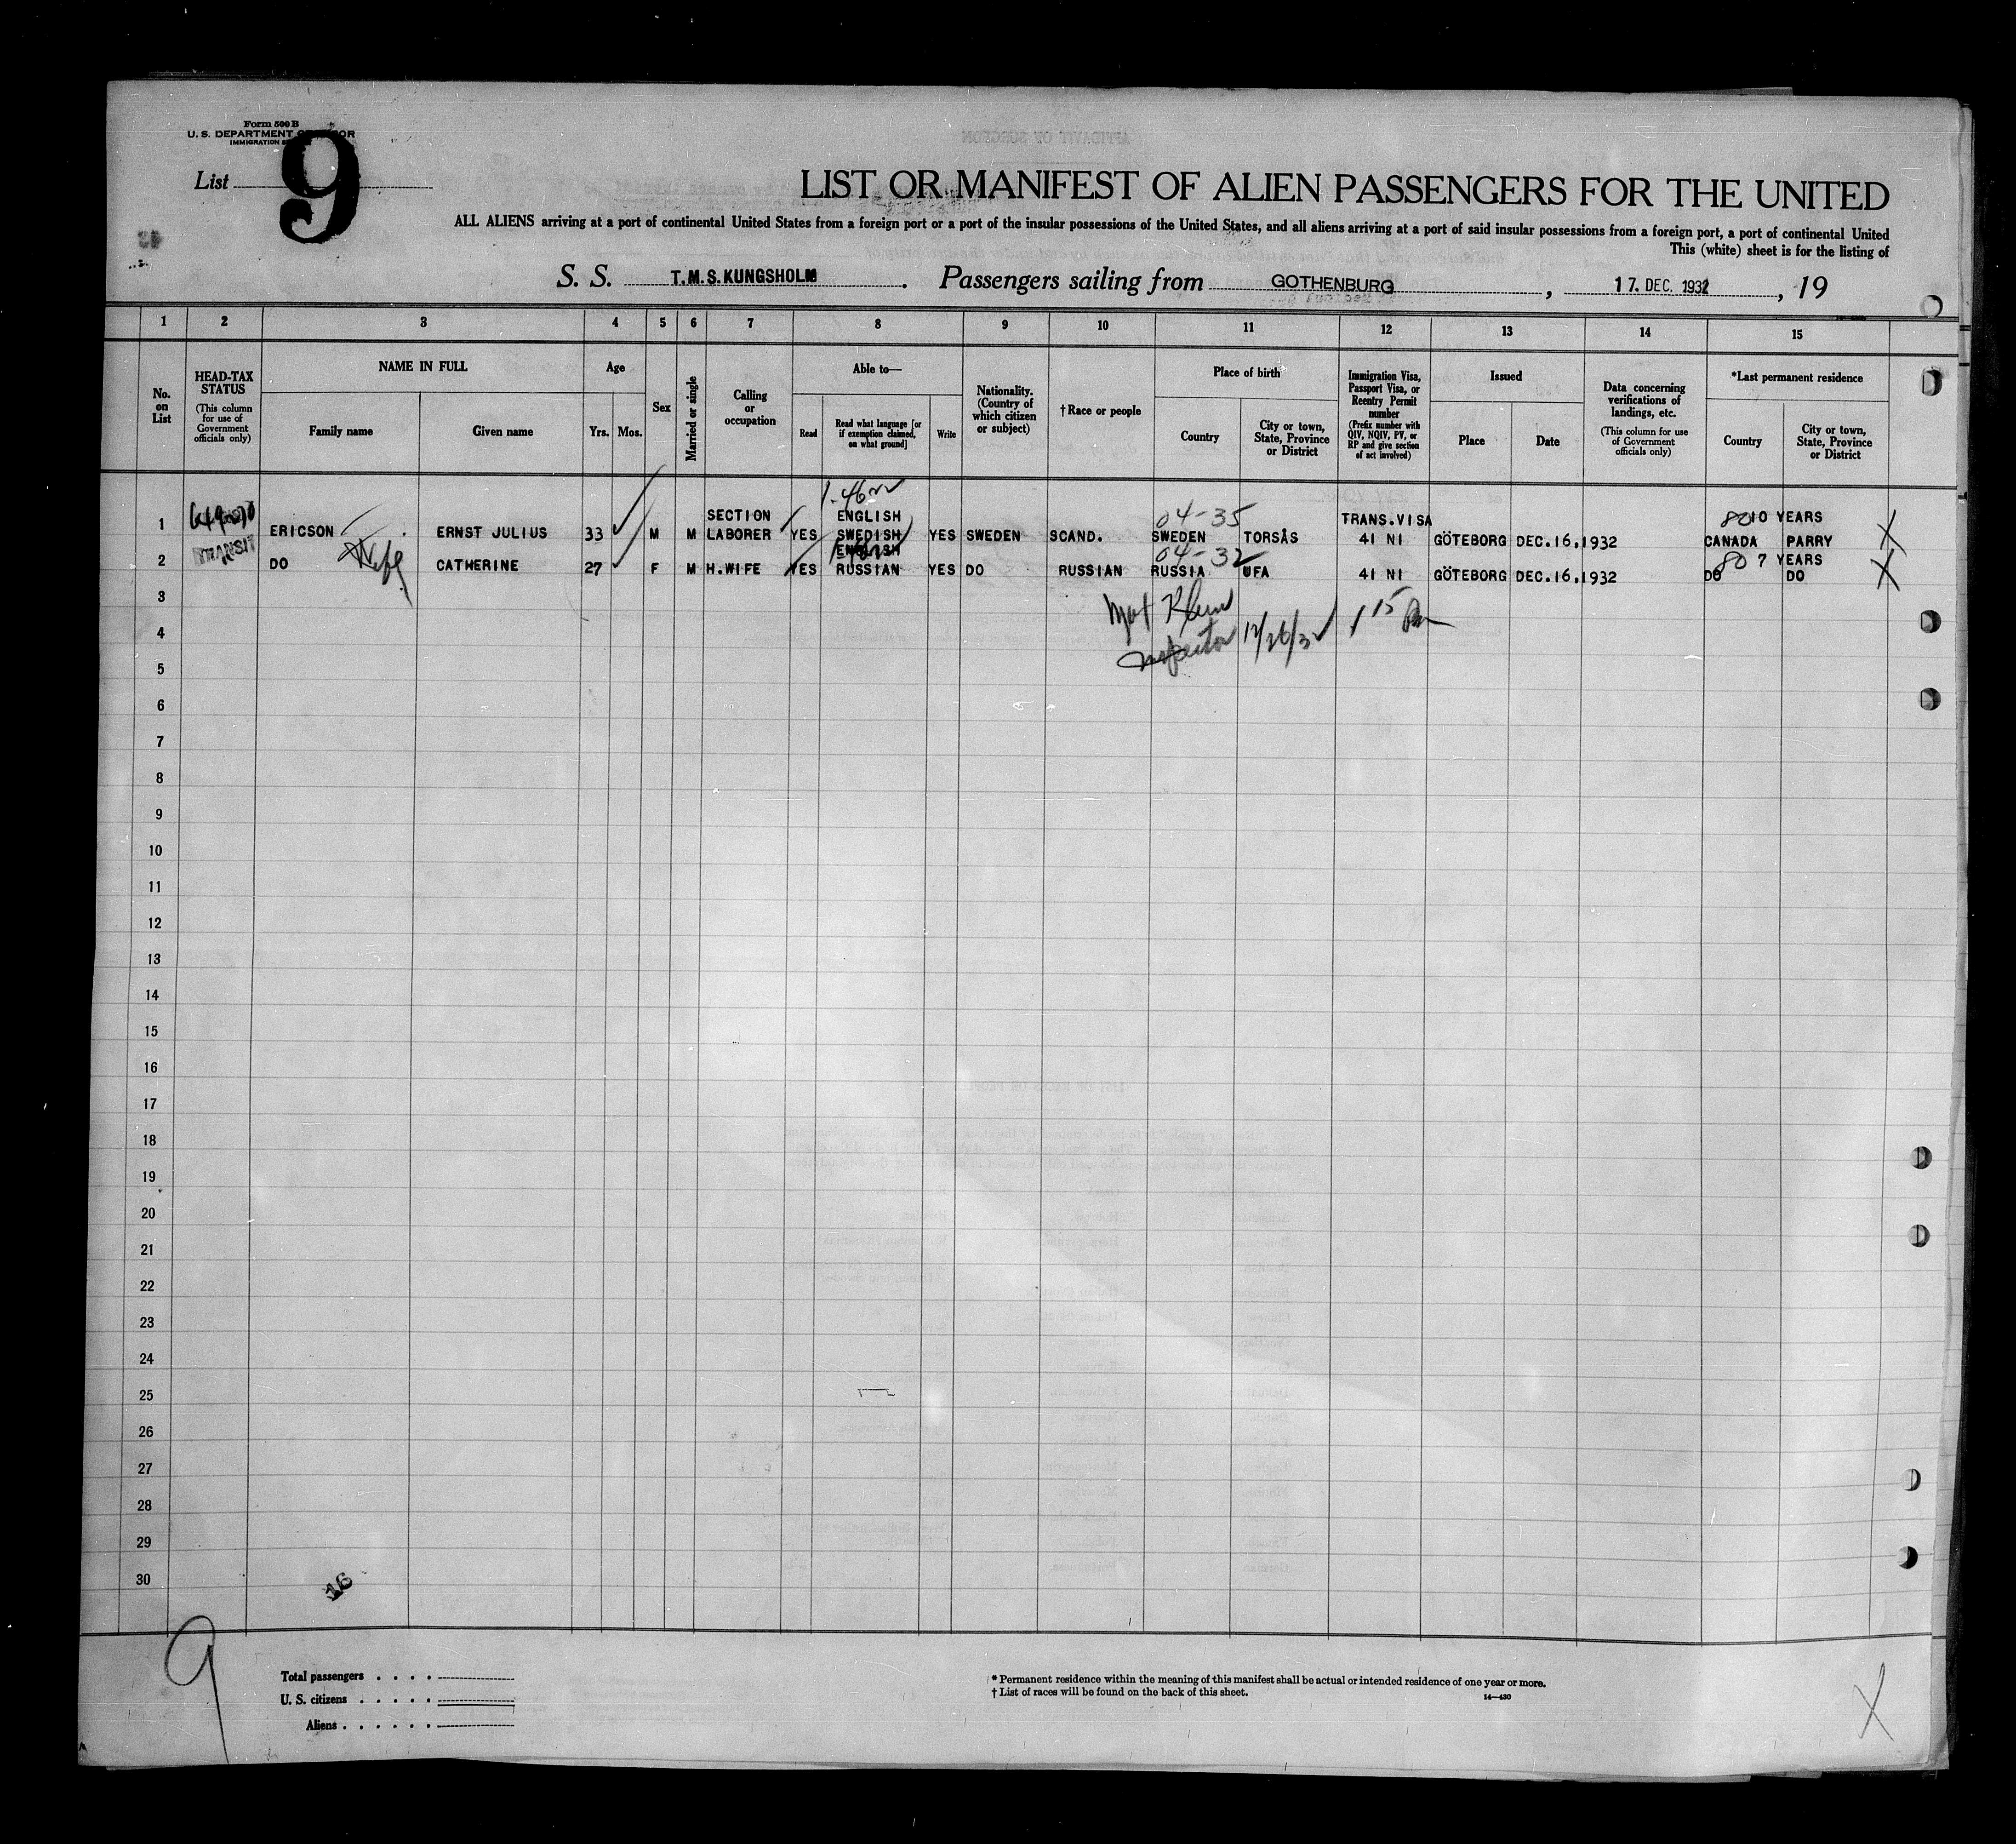 Form 500 B
U. S. DEPARTMENT OF LABOR
IMMIGRATION
List 9
LIST OR MANIFEST OF ALIEN PASSENGERS FOR THE UNITED
ALL ALIENS arriving at a port of continental United States from a foreign port or a port of the insular possessions of the United States, and all aliens arriving at a port of said insular possessions from a foreign port, a port of continental United
This (white) sheet is for the listing of
S. S. T.M.S.KUNGSHOLM. Passengers sailing from GOTHENBURG, 17. DEC. 1932, 19
1 2 3 4 5 6 7 8 9 10 11 12 13 14 15
No. on List
HEAD-TAX STATUS
(This column for use of Government officials only)
NAME IN FULL
Family name
Given name
Age
Yrs. Mos.
Sex
Married or single
Calling or occupation
Able to—
Read
Read what language [or if exemption claimed, on what ground]
Write
Nationality. (Country of which citizen or subject)
† Race or people
Place of birth
Country
City or town, State, Province or District
Immigration Visa, Passport Visa, or Reentry Permit number
(Prefix number with QIV, NQIV, PV, or RP and give section of act involved)
Issued
Place
Date
Data concerning verifications of landings, etc.
(This column for use of Government officials only)
*Last permanent residence
Country
City or town, State, Province or District
SECTION ENGLISH 04-35 TRANS.VISA 80 10 YEARS
1 ERICSON ERNST JULIUS 33 M M LABORER YES SWEDISH YES SWEDEN SCAND. SWEDEN TORSÅS 41 NI GÖTEBORG DEC.16.1932 CANADA PARRY X
TRANSIT ENGLISH 04-32 80 7 YEARS
2 DO Wife CATHERINE 27 F M H.WIFE YES RUSSIAN YES DO RUSSIAN RUSSIA UFA 41 NI GÖTEBORG DEC.16.1932 DO DO X
3
4
Inspector 12/26/32 1 15 Pm
5
6
7
8
9
10
11
12
13
14
15
16
17
18
19
20
21
22
23
24
25
26
27
28
29
30
16
9
Total passengers . . . .
U. S. citizens . . . . .
Aliens . . . . . .
* Permanent residence within the meaning of this manifest shall be actual or intended residence of one year or more.
† List of races will be found on the back of this sheet.
14—430
X